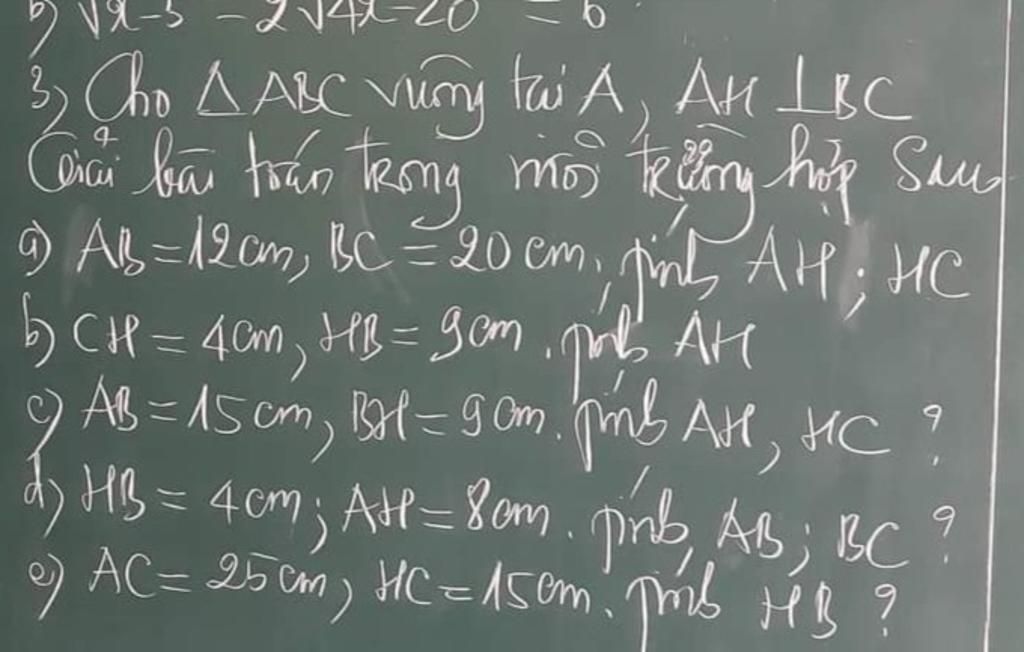 b) √x-5 - 2√4x-20 = 6
3) Cho △ ABC vuông tại A, AH ⊥ BC
Giải bài toán trong mỗi trường hợp Sau
a) AB = 12cm, BC = 20 cm, tính AH ; HC
b) CH = 4cm, HB = 9cm. tính AH
c) AB = 15 cm, BH = 9 cm. tính AH, HC ?
d) HB = 4cm; AH = 8cm. tính AB; BC ?
e) AC = 25 cm, HC = 15cm. tính HB ?